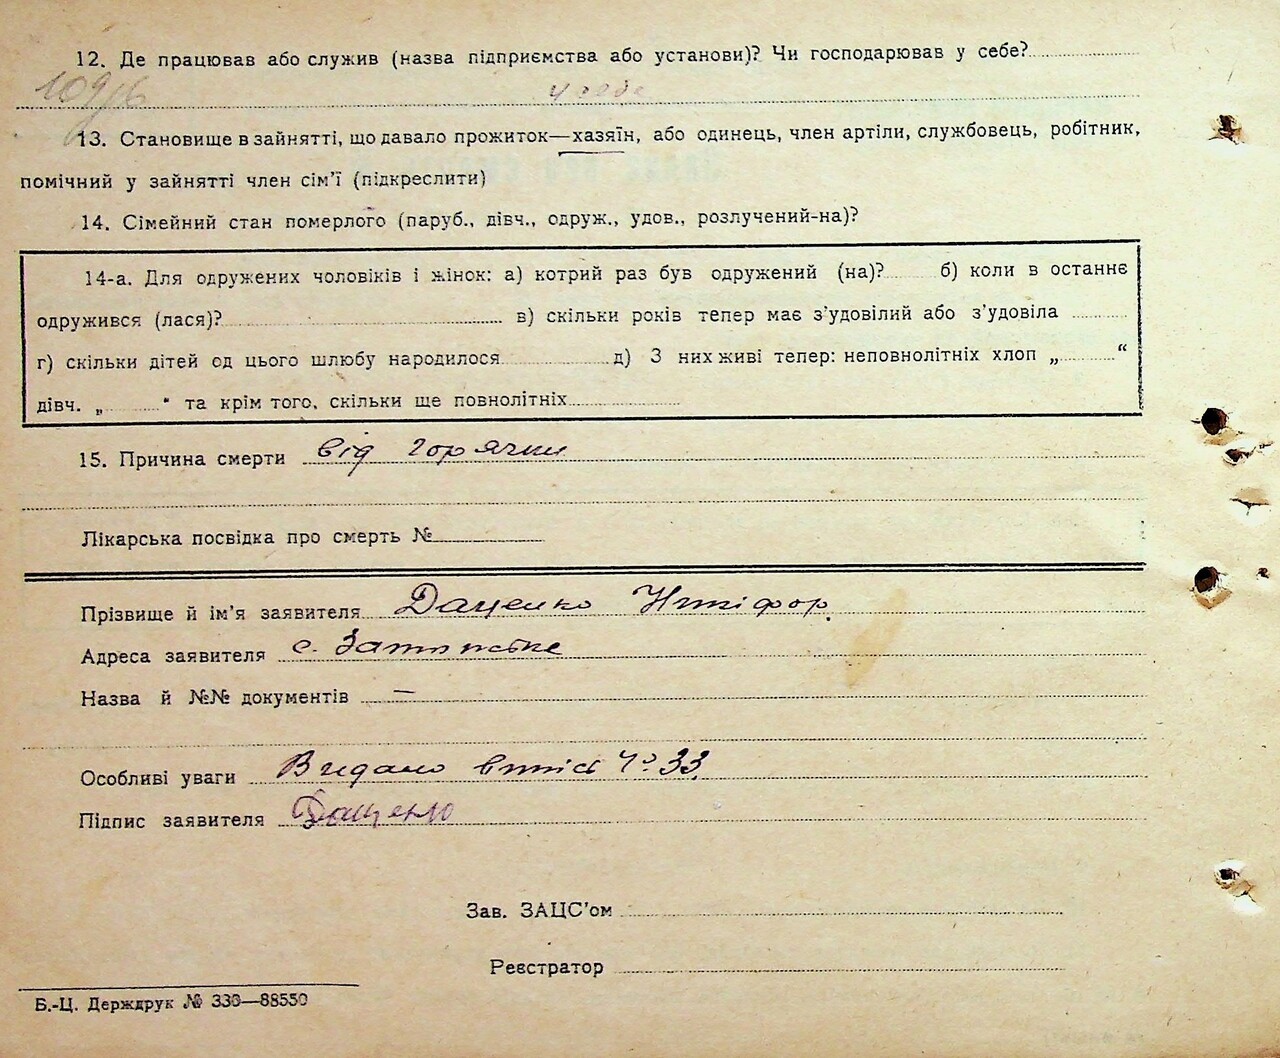 12. Де працював або служив (назва підприємства або установи)? Чи господарював у себе?
у себе
13. Становище в зайнятті, що давало прожиток—хазяїн, або одинець, член артіли, службовець, робітник,
помічний у зайнятті член сім'ї (підкреслити)
14. Сімейний стан померлого (паруб., дівч., одруж., удов., розлучений-на)?
14-а. Для одружених чоловіків і жінок: а) котрий раз був одружений (на)? б) коли в останнє
одружився (лася)? в) скільки років тепер має з'удовілий або з'удовіла
г) скільки дітей од цього шлюбу народилося д) З них живі тепер: неповнолітніх хлоп „ “
дівч. „ “ та крім того, скільки ще повнолітніх
15. Причина смерти від горячки
Лікарська посвідка про смерть №
Прізвище й ім'я заявителя Даценко Никіфор.
Адреса заявителя с.
Назва й №№ документів —
Особливі уваги Видано випис № 33.
Підпис заявителя Даценко
Зав. ЗАЦС'ом
Реєстратор
Б.-Ц. Держдрук № 330—88550